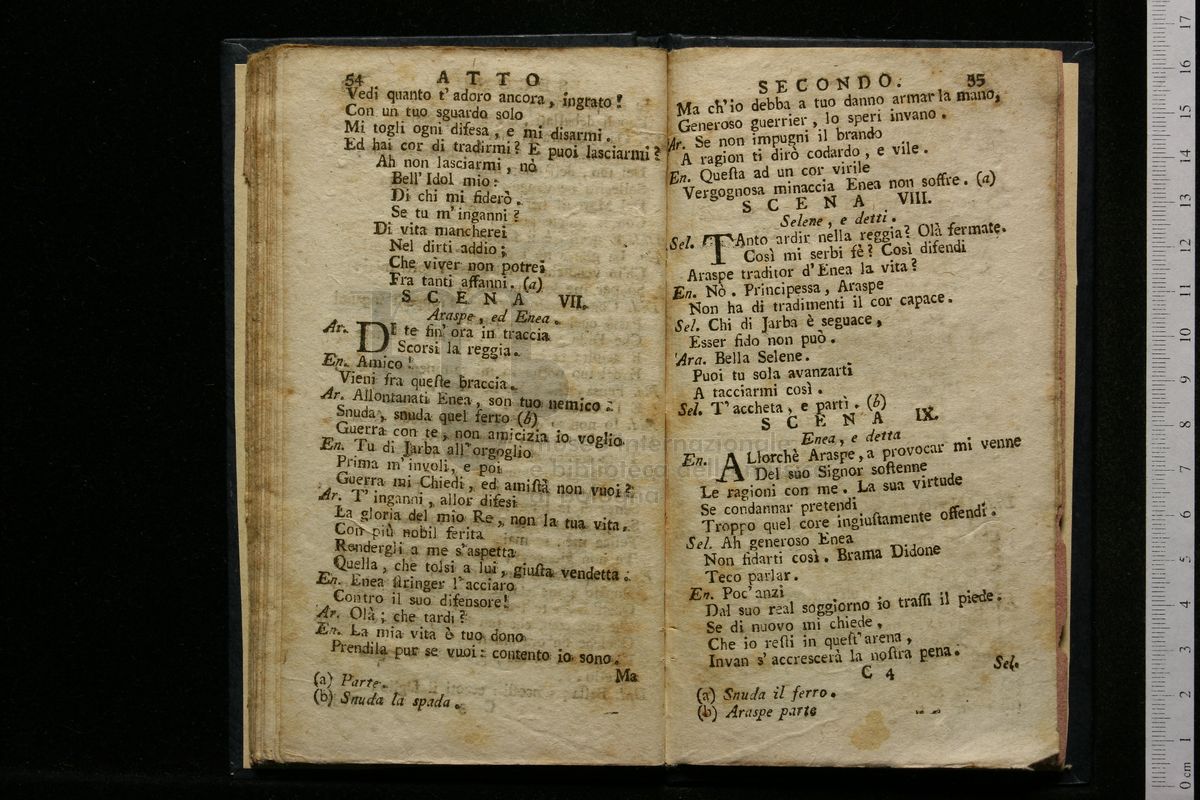 54 ATTO
Vedi quanto t'adoro ancora, ingrato!
Con un tuo sguardo solo
Mi togli ogni difesa, e mi disarmi.
Ed hai cor di tradirmi? E puoi lasciarmi?
Ah non lasciarmi, nò
Bell' Idol mio:
Di chi mi fiderò.
Se tu m'inganni?
Di vita mancherei
Nel dirti addio;
Che viver non potrei
Fra tanti affanni. (a)
SCENA VII.
Araspe, ed Enea.
Ar. DI te fin' ora in traccia
Scorsi la reggia.
En. Amico!
Vieni fra queſte braccia.
Ar. Allontanati Enea, son tuo nemico.
Snuda, snuda quel ferro (b)
Guerra con te, non amicizia io voglio.
En. Tu di Jarba all'orgoglio
Prima m'involi, e poi
Guerra mi Chiedi, ed amiſtà non vuoi?
Ar. T'inganni, allor difesi
La gloria del mio Re, non la tua vita.
Con più nobil ferita
Rendergli a me s'aspetta
Quella, che tolsi a lui, giuſta vendetta.
En. Enea ſtringer l'acciaro
Contro il suo difensore!
Ar. Olà; che tardi?
En. La mia vita è tuo dono
Prendila pur se vuoi: contento io sono.
Ma
(a) Parte.
(b) Snuda la spada.
SECONDO. 55
Ma ch'io debba a tuo danno armar la mano,
Generoso guerrier, lo speri invano.
Ar. Se non impugni il brando
A ragion ti dirò codardo, e vile.
En. Queſta ad un cor virile
Vergognosa minaccia Enea non soffre. (a)
SCENA VIII.
Selene, e detti.
Sel. TAnto ardir nella reggia? Olà fermate.
Così mi serbi fè? Così difendi
Araspe traditor d'Enea la vita?
En. Nò. Principessa, Araspe
Non ha di tradimenti il cor capace.
Sel. Chi di Jarba è seguace,
Esser fido non può.
Ara. Bella Selene.
Puoi tu sola avanzarti
A tacciarmi così.
Sel. T'accheta, e parti. (b)
SCENA IX.
Enea, e detta
En. ALlorchè Araspe, a provocar mi venne
Del suo Signor soſtenne
Le ragioni con me. La sua virtude
Se condannar pretendi
Troppo quel core ingiuſtamente offendi.
Sel. Ah generoso Enea
Non fidarti così. Brama Didone
Teco parlar.
En. Poc'anzi
Dal suo real soggiorno io traſſi il piede.
Se di nuovo mi chiede,
Che io reſti in queſt'arena,
Invan s'accrescerà la noſtra pena.
C 4 Sel.
(a) Snuda il ferro.
(b) Araspe parte